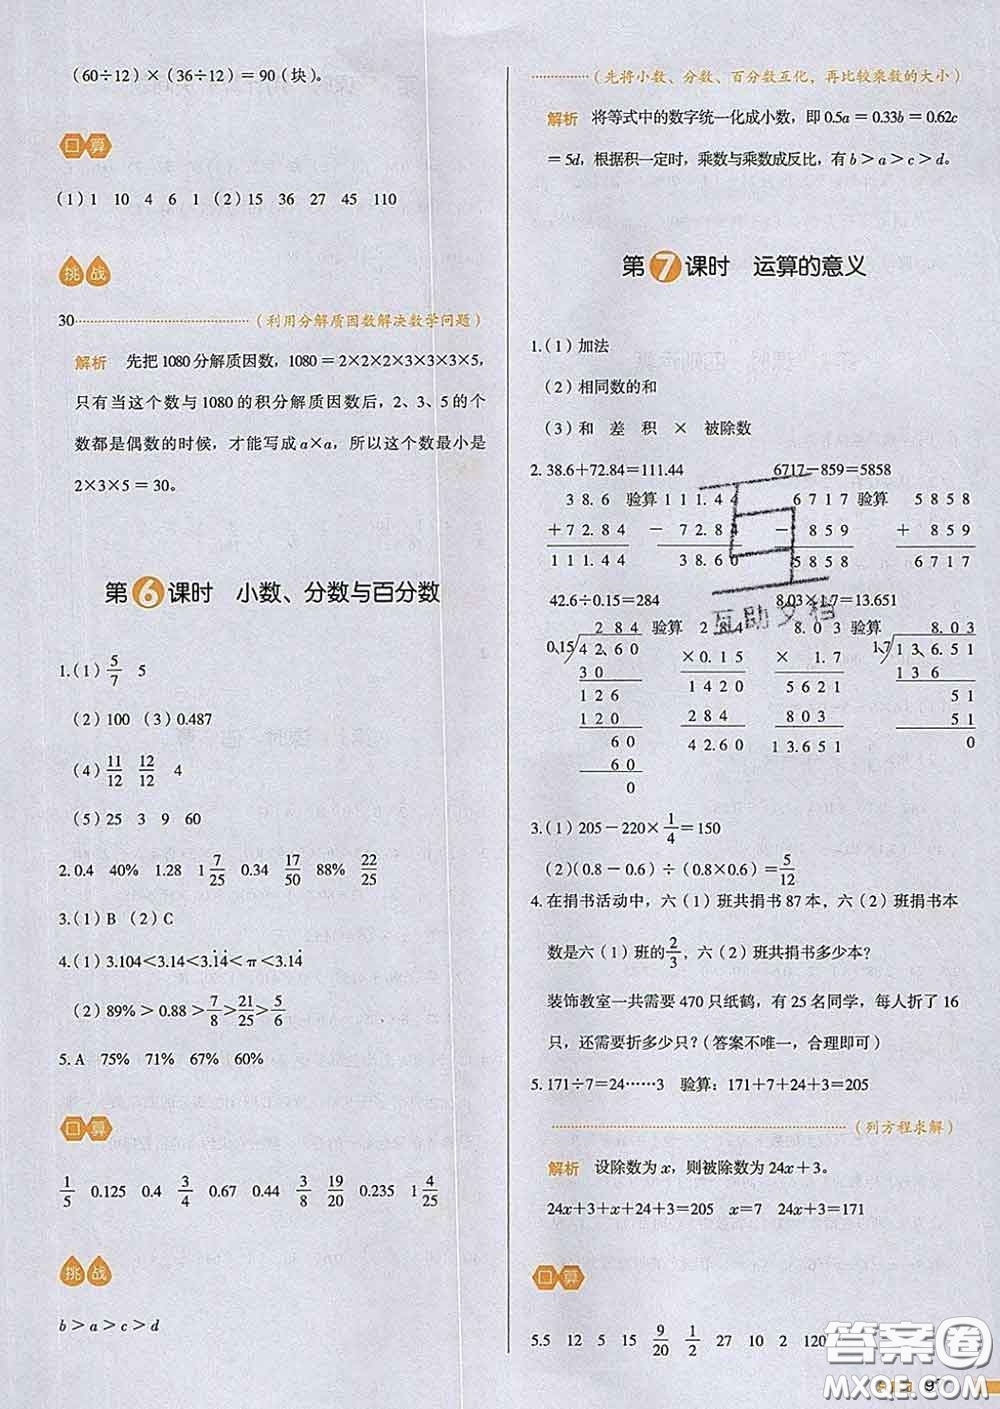 (60÷12)×(36÷12)＝90(块)。
口算
(1)1 10 4 6 1 (2)15 36 27 45 110
挑战
30……………………(利用分解质因数解决数学问题)
解析 先把1080分解质因数，1080＝2×2×2×3×3×3×5，
只有当这个数与1080的积分解质因数后，2、3、5的个
数都是偶数的时候，才能写成a×a，所以这个数最小是
2×3×5＝30。
第6课时 小数、分数与百分数
1.(1) 5/7 5
(2)100 (3)0.487
(4) 11/12 12/12 4
(5)25 3 9 60
2.0.4 40% 1.28 1 7/25 0.34 17/50 88% 22/25
3.(1)B (2)C
4.(1)3.104＜3.14＜3.1̇4̇＜π＜3.14̇
(2)89%＞0.88＞7/8＞21/25＞5/6
5.A 75% 71% 67% 60%
口算
1/5 0.125 0.4 3/4 0.67 0.44 3/8 19/20 0.235 1 4/25
挑战
b＞a＞c＞d
……………(先将小数、分数、百分数互化，再比较乘数的大小)
解析 将等式中的数字统一化成小数，即0.5a＝0.33b＝0.62c
＝5d，根据积一定时，乘数与乘数成反比，有b＞a＞c＞d。
第7课时 运算的意义
1.(1)加法
(2)相同数的和
(3)和 差 积 × 被除数
2.38.6+72.84=111.44 6717-859=5858
38.6 验算 111.44 6717 验算 5858
+72.84 -72.84 -859 + 859
111.44 38.60 5858 6717
42.6÷0.15=284 8.03×1.7=13.651
284 验算 284 8.03 验算 8.03
0.15 42.60 ×0.15 × 1.7 1.7 13.651
30 1420 5621 136
126 284 803 51
120 42.60 13.651 51
60 0
60
0
3.(1)205－220×1/4＝150
(2)(0.8－0.6)÷(0.8×0.6)＝5/12
4.在捐书活动中，六(1)班共捐书87本，六(2)班捐书本
数是六(1)班的2/3，六(2)班共捐书多少本？
装饰教室一共需要470只纸鹤，有25名同学，每人折了16
只，还需要折多少只？(答案不唯一，合理即可)
5.171÷7＝24……3 验算：171+7+24+3＝205
……………………(列方程求解)
解析 设除数为x，则被除数为24x+3。
24x+3+x+24+3＝205 x＝7 24x+3＝171
口算
5.5 12 5 15 9/20 1/2 27 10 2 120
互助文档
答案圈
MXQE.COM